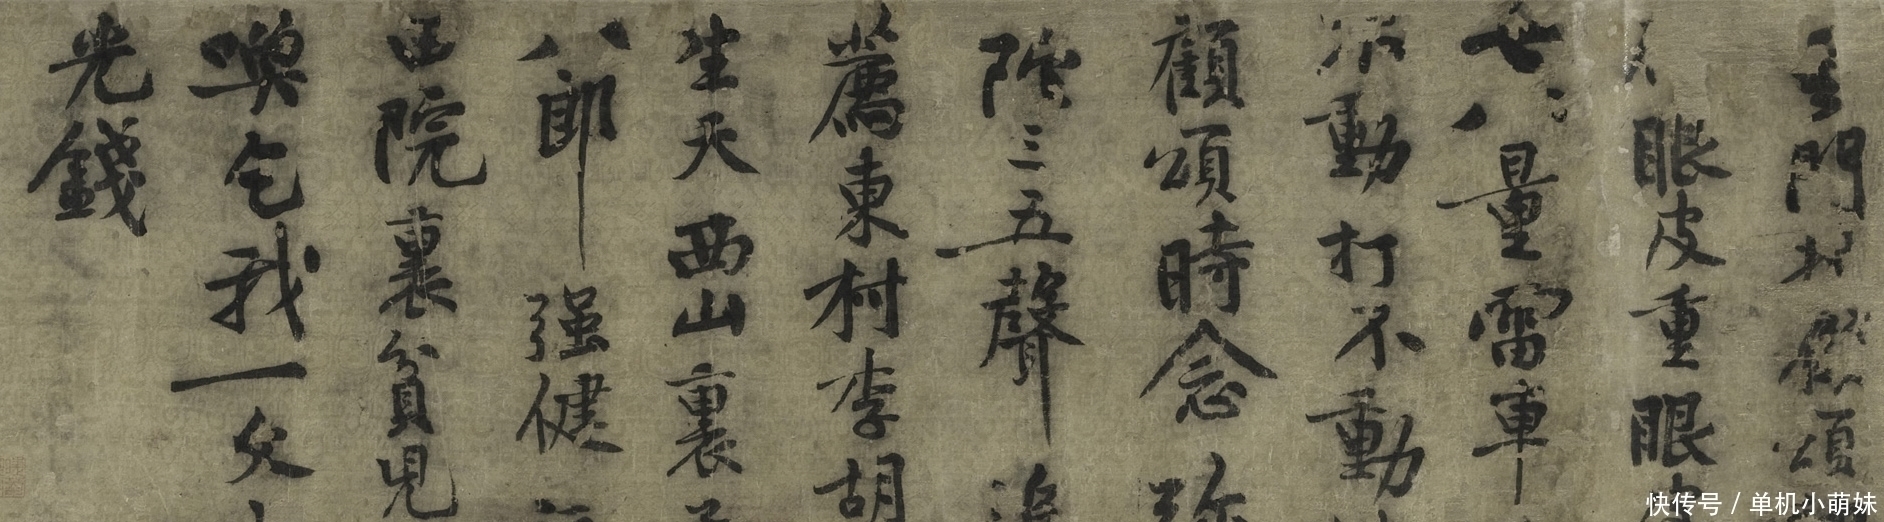 門 頌
眼皮重眼
八量雷車
動打不動
顧頌時念弥
陀三五聲追
薦東村李胡
生天西山裏
八郎强健
田院裏貧兒
喚乞我一文
光錢
快传号 / 单机小萌妹